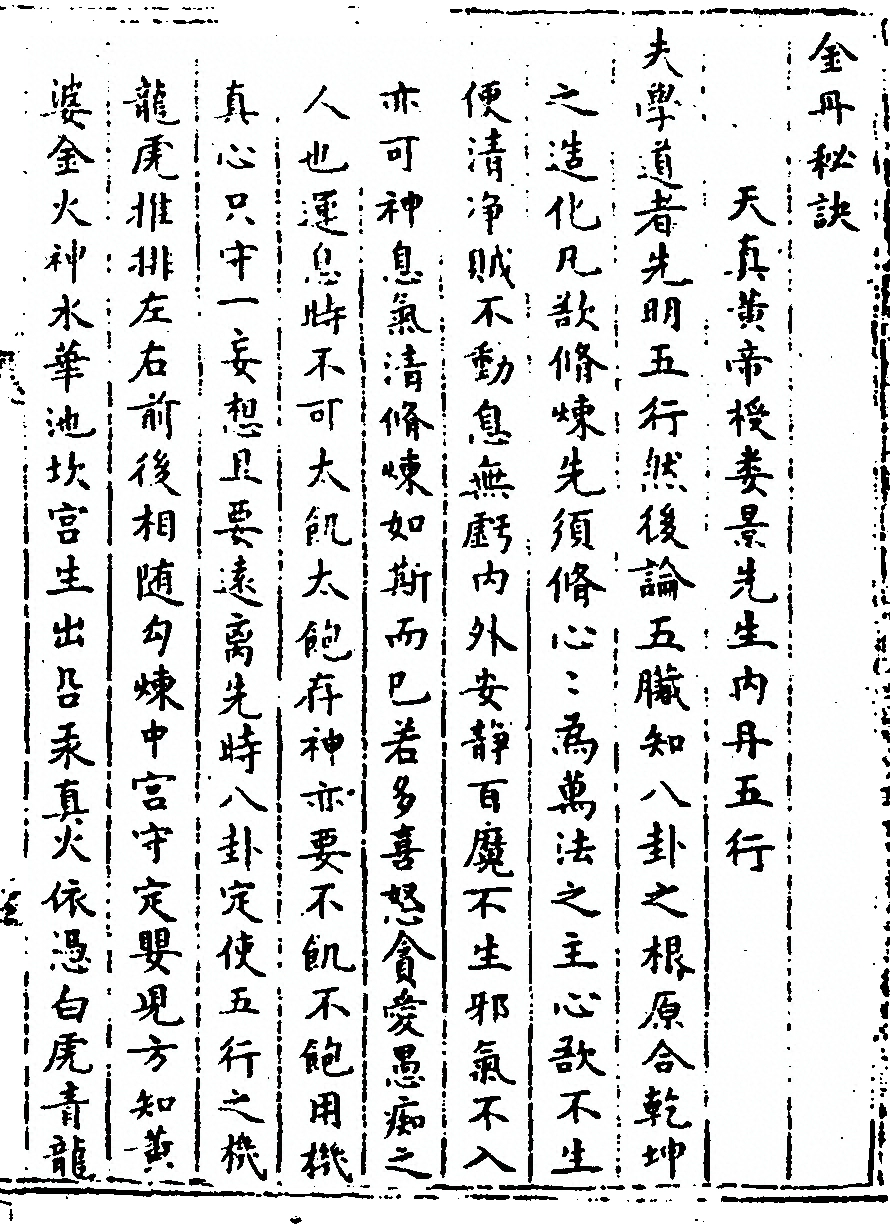 金丹秘訣
天真黄帝授娄景先生内丹五行
夫學道者先明五行然後論五臟知八卦之根原合乾坤
之造化凡欲脩煉先須脩心〻為萬法之主心欲不生
便清净贼不動息無虧内外安静百魔不生邪氣不入
亦可神息氣清脩煉如斯而已若多喜怒貪愛愚痴之
人也運息時不可太飢太飽存神亦要不飢不飽用機
真心只守一妄想且要遠离先時八卦定使五行之機
龍虎推排左右前後相随勾煉中宫守定嬰児方知黄
婆金火神水華池坎宫生出汞真火依憑白虎青龍